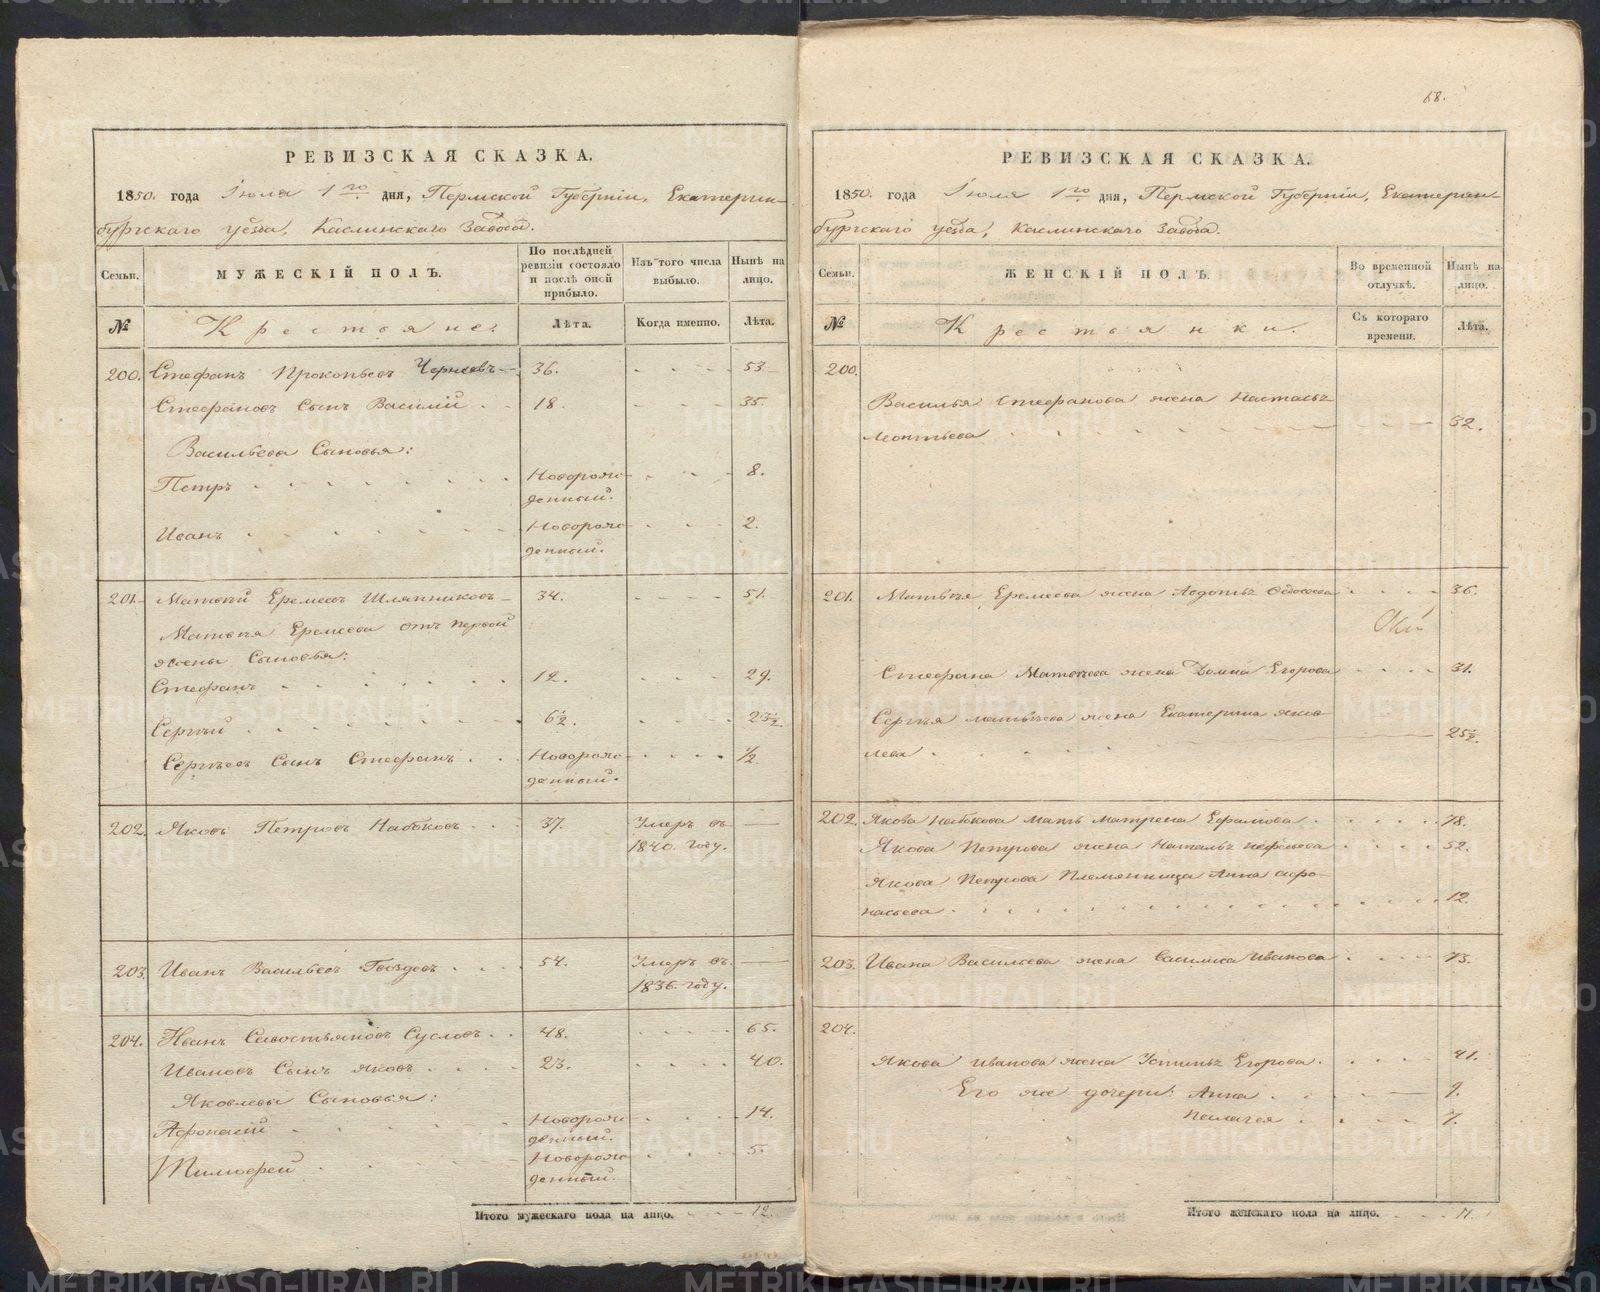 68.
РЕВИЗСКАЯ СКАЗКА.
1850. года Іюля 1го дня, Пермской Губерніи, Екатерин-
бургскаго уѣзда, Каслинскаго Завода.
Семьи.
МУЖЕСКІЙ ПОЛЪ.
По послѣдней
ревизіи состояло
и послѣ оной
прибыло.
Изъ того числа
выбыло.
Нынѣ на
лицо.
№
Крестьяне:
Лѣта.
Когда именно.
Лѣта.
200. Стефанъ Прокопьевъ Черневъ 36. 53
Стефановъ Сынъ Василій 18. 35.
Васильева Сыновья:
Петръ Новорож- 8.
денный.
Иванъ Новорож- 2.
денный.
201. Матвѣй Еремеевъ Шляпниковъ 34. 51.
Матвѣя Еремеева отъ первой
жены Сыновья:
Стефанъ 12. 29.
Сергѣй 6½. 23½.
Сергѣевъ Сынъ Стефанъ Новорож- ½
денный.
202. Яковъ Петровъ Набоковъ 37. Умеръ въ —
1840. году.
203. Иванъ Васильевъ Гвоздевъ 54. Умеръ въ —
1836. году.
204. Иванъ Савостьяновъ Сусловъ 48. 65.
Ивановъ Сынъ Яковъ 23. 40.
Яковлевы Сыновья:
Афонасій Новорож- 14.
денный.
Тимофей Новорож- 5.
денный.
Итого мужескаго пола на лицо. 12.
РЕВИЗСКАЯ СКАЗКА.
1850. года Іюля 1го дня, Пермской Губерніи, Екатерин-
бургскаго уѣзда, Каслинскаго Завода.
Семьи.
ЖЕНСКІЙ ПОЛЪ.
Во временной
отлучкѣ.
Нынѣ на
лицо.
№
Крестьянки.
Съ котораго
времени.
Лѣта.
200.
Василья Стефанова жена Настасья
Леонтьева 32.
201. Матвѣя Еремеева жена Авдотья Федосеева 36.
Стефана Матвѣева жена Домна Егорова 31.
Сергѣя Матвѣева жена Екатерина Яков-
лева 25½.
202. Якова Набокова мать Матрена Ефимова 78.
Якова Петрова жена Наталья 52.
Якова Петрова Племянница Анна Афо-
насьева 12.
203. Ивана Васильева жена Василиса Иванова 73.
204.
Якова Иванова жена Устинья Егорова. 41.
Его же дочери: Анна 9.
Пелагея 7.
Итого женскаго пола на лицо. 11.
METRIKI.GASO-URAL.RU